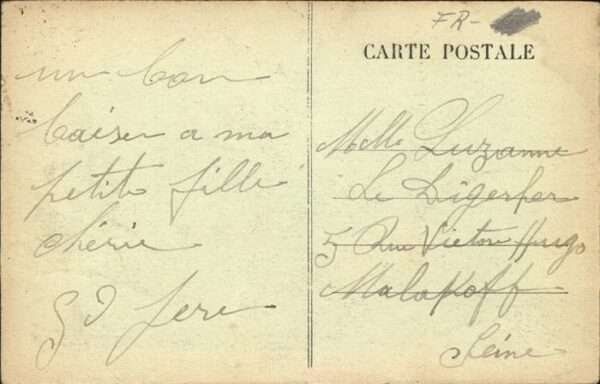 FR-
CARTE POSTALE
un bon
baiser a ma
petite fille
chérie
Gd Père
Melle Suzanne
Le
5 Rue Victor Hugo
Malakoff
Seine